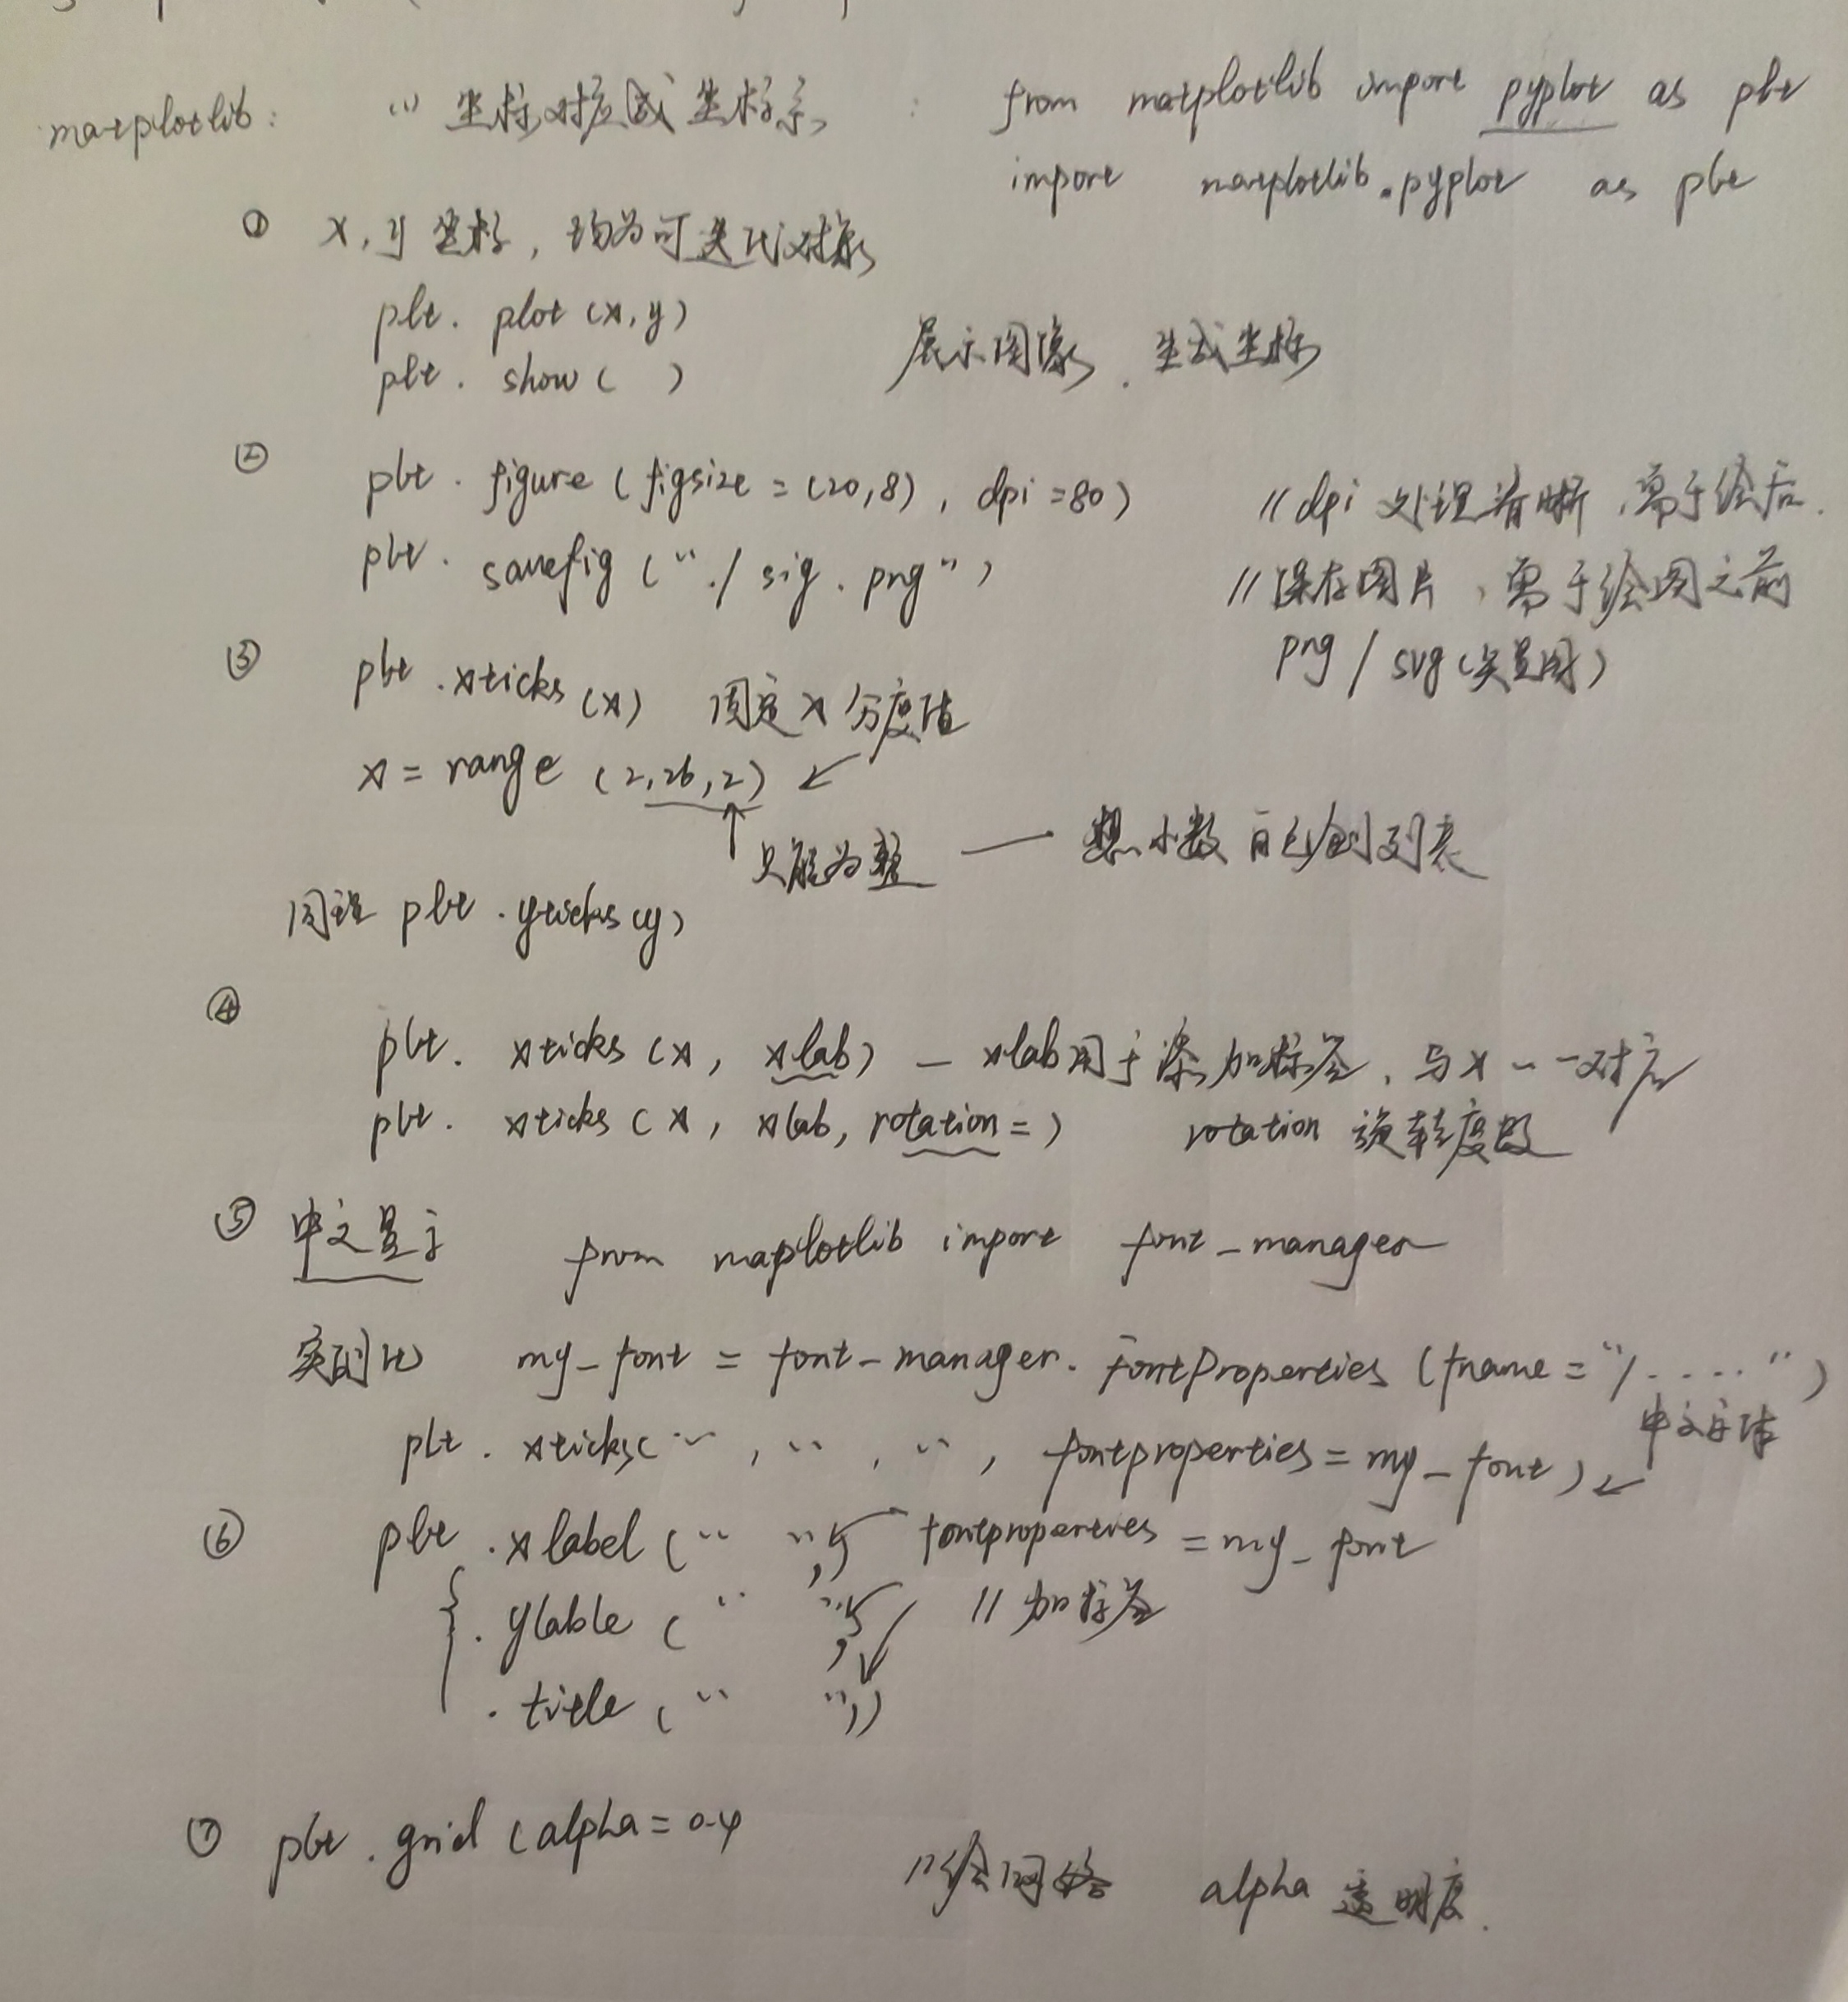 matplotlib: (1) 坐标对应成坐标系 : from matplotlib import pyplot as plt
import matplotlib.pyplot as plt
① x,y 坐标,均为可迭代对象
plt. plot (x,y)
plt. show ( ) 展示图像、生成坐标
② plt. figure (figsize = (20,8), dpi =80) // dpi 处理清晰,需于绘后.
plt. savefig ("./ sig. png") // 保存图片,需于绘图之前
png / svg (矢量图)
③ plt .xticks (x) 固定x分度值
x = range (2,26,2)
只能为整 — 想小数自己创列表
同理 plt .yticks(y)
④ plt. xticks (x, xlab) — xlab用于添加标签、与x一一对应
plt. xticks (x, xlab, rotation= ) rotation 旋转度数
⑤ 中文显示 from maplotlib import font_manager
实例化 my_font = font_manager. FontProperties (fname = "/....")
中文字体
plt. xticks( " , " , " , fontproperties = my_font)
⑥ plt .xlabel (" ",) fontproperties = my_font
.ylable (" ",) // 加标签
.title (" ",)
⑦ plt .grid (alpha = 0.4 //绘网络 alpha 透明度.